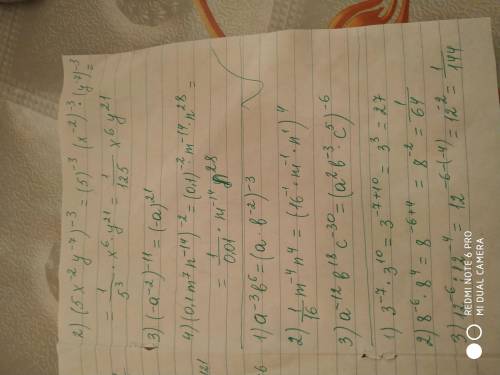 2) (5x⁻²y⁻⁷)⁻³ = (5)⁻³ (x⁻²)⁻³ · (y⁻⁷)⁻³ =
= 1/5³ · x⁶ · y²¹ = 1/125 x⁶y²¹
3) (-a⁻²)⁻¹¹ = (-a)²¹
4) (0,1m⁷n⁻¹⁴)⁻² = (0,1)⁻² · m⁻¹⁴ n²⁸ =
= 1/0,01 · m⁻¹⁴ n²⁸
1) a⁻³b⁶ = (a · b⁻²)⁻³
2) 1/16 m⁻⁴n⁴ = (16⁻¹ · m⁻¹ · n¹)⁴
3) a⁻¹²b¹⁸c⁻³⁰ = (a²b⁻³ · c⁵)⁻⁶
1) 3⁻⁷ · 3¹⁰ = 3⁻⁷⁺¹⁰ = 3³ = 27
2) 8⁻⁶ · 8⁴ = 8⁻⁶⁺⁴ = 8⁻² = 1/64
3) 12⁻⁶ : 12⁻⁴ = 12⁻⁶⁻⁽⁻⁴⁾ = 12⁻² = 1/144
REDMI NOTE 6 PRO
MI DUAL CAMERA